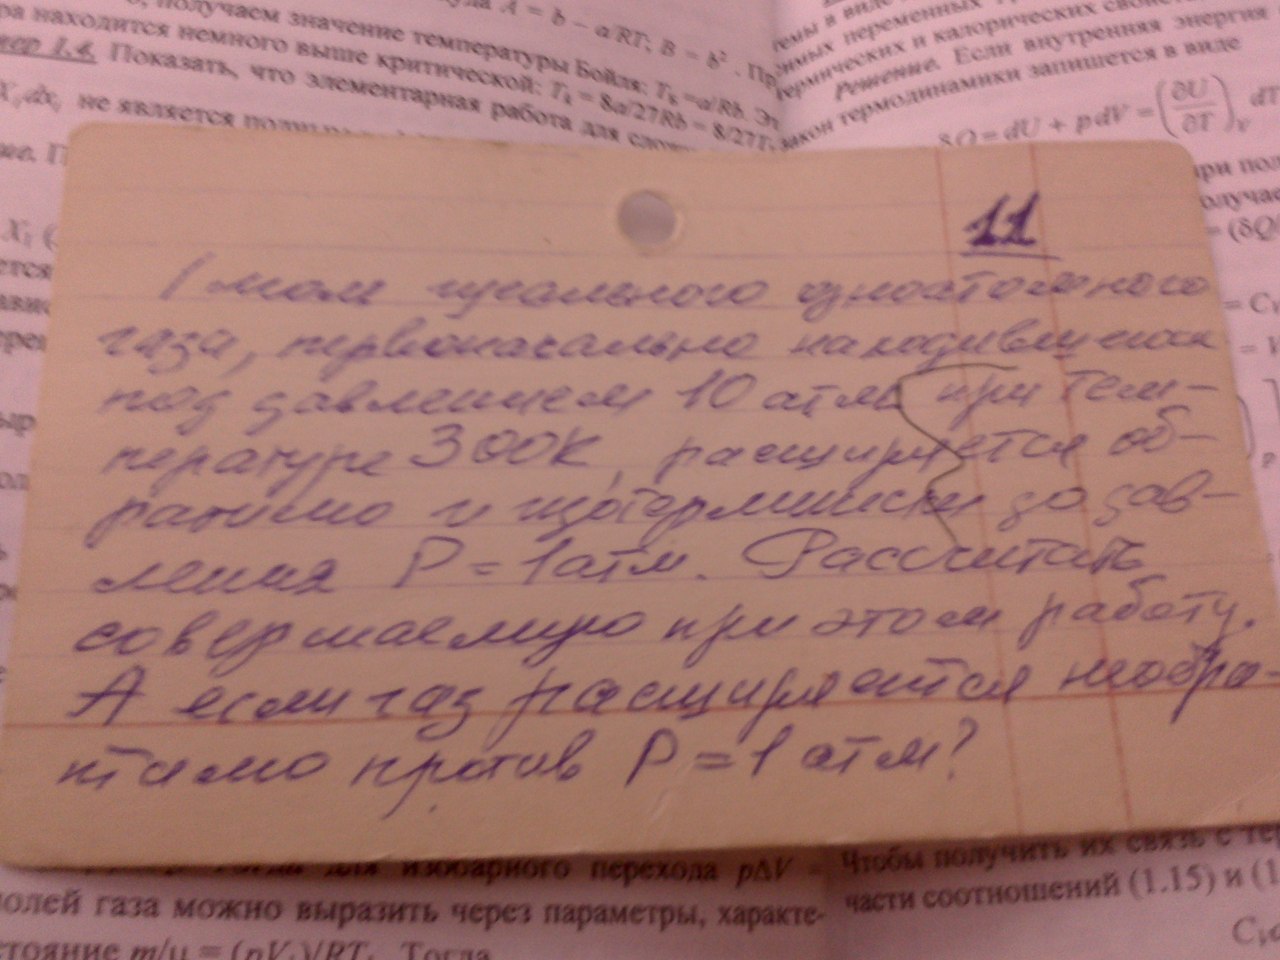 , получаем значение температуры Бойля: T_k = a/Rb. Эт
ра находится немного выше критической: T_k = 8a/27Rb = 8/27T
Показать, что элементарная работа для слож
не является
A = b − a/RT; B = b². Пр
темы в виде
переменных
термических и калорических свойств
Решение. Если внутренняя энергия
закон термодинамики запишется в виде
δQ = dU + pdV = (∂U/∂T)_V dT
при пол
получае
= (δQ
11
1 моль идеального одноатомного
газа, первоначально находившийся
под давлением 10 атм при тем-
пературе 300К, расширяется об-
ратимо и изотермически до дав-
ления P = 1 атм. Рассчитать
совершаемую при этом работу.
А если газ расширяется необра-
тимо против P = 1 атм?
для изобарного перехода pΔV =
молей газа можно выразить через параметры, характе-
стояние m/μ = (pV₁)/RT₁. Тогда
Чтобы получить их связь с те
части соотношений (1.15) и (1